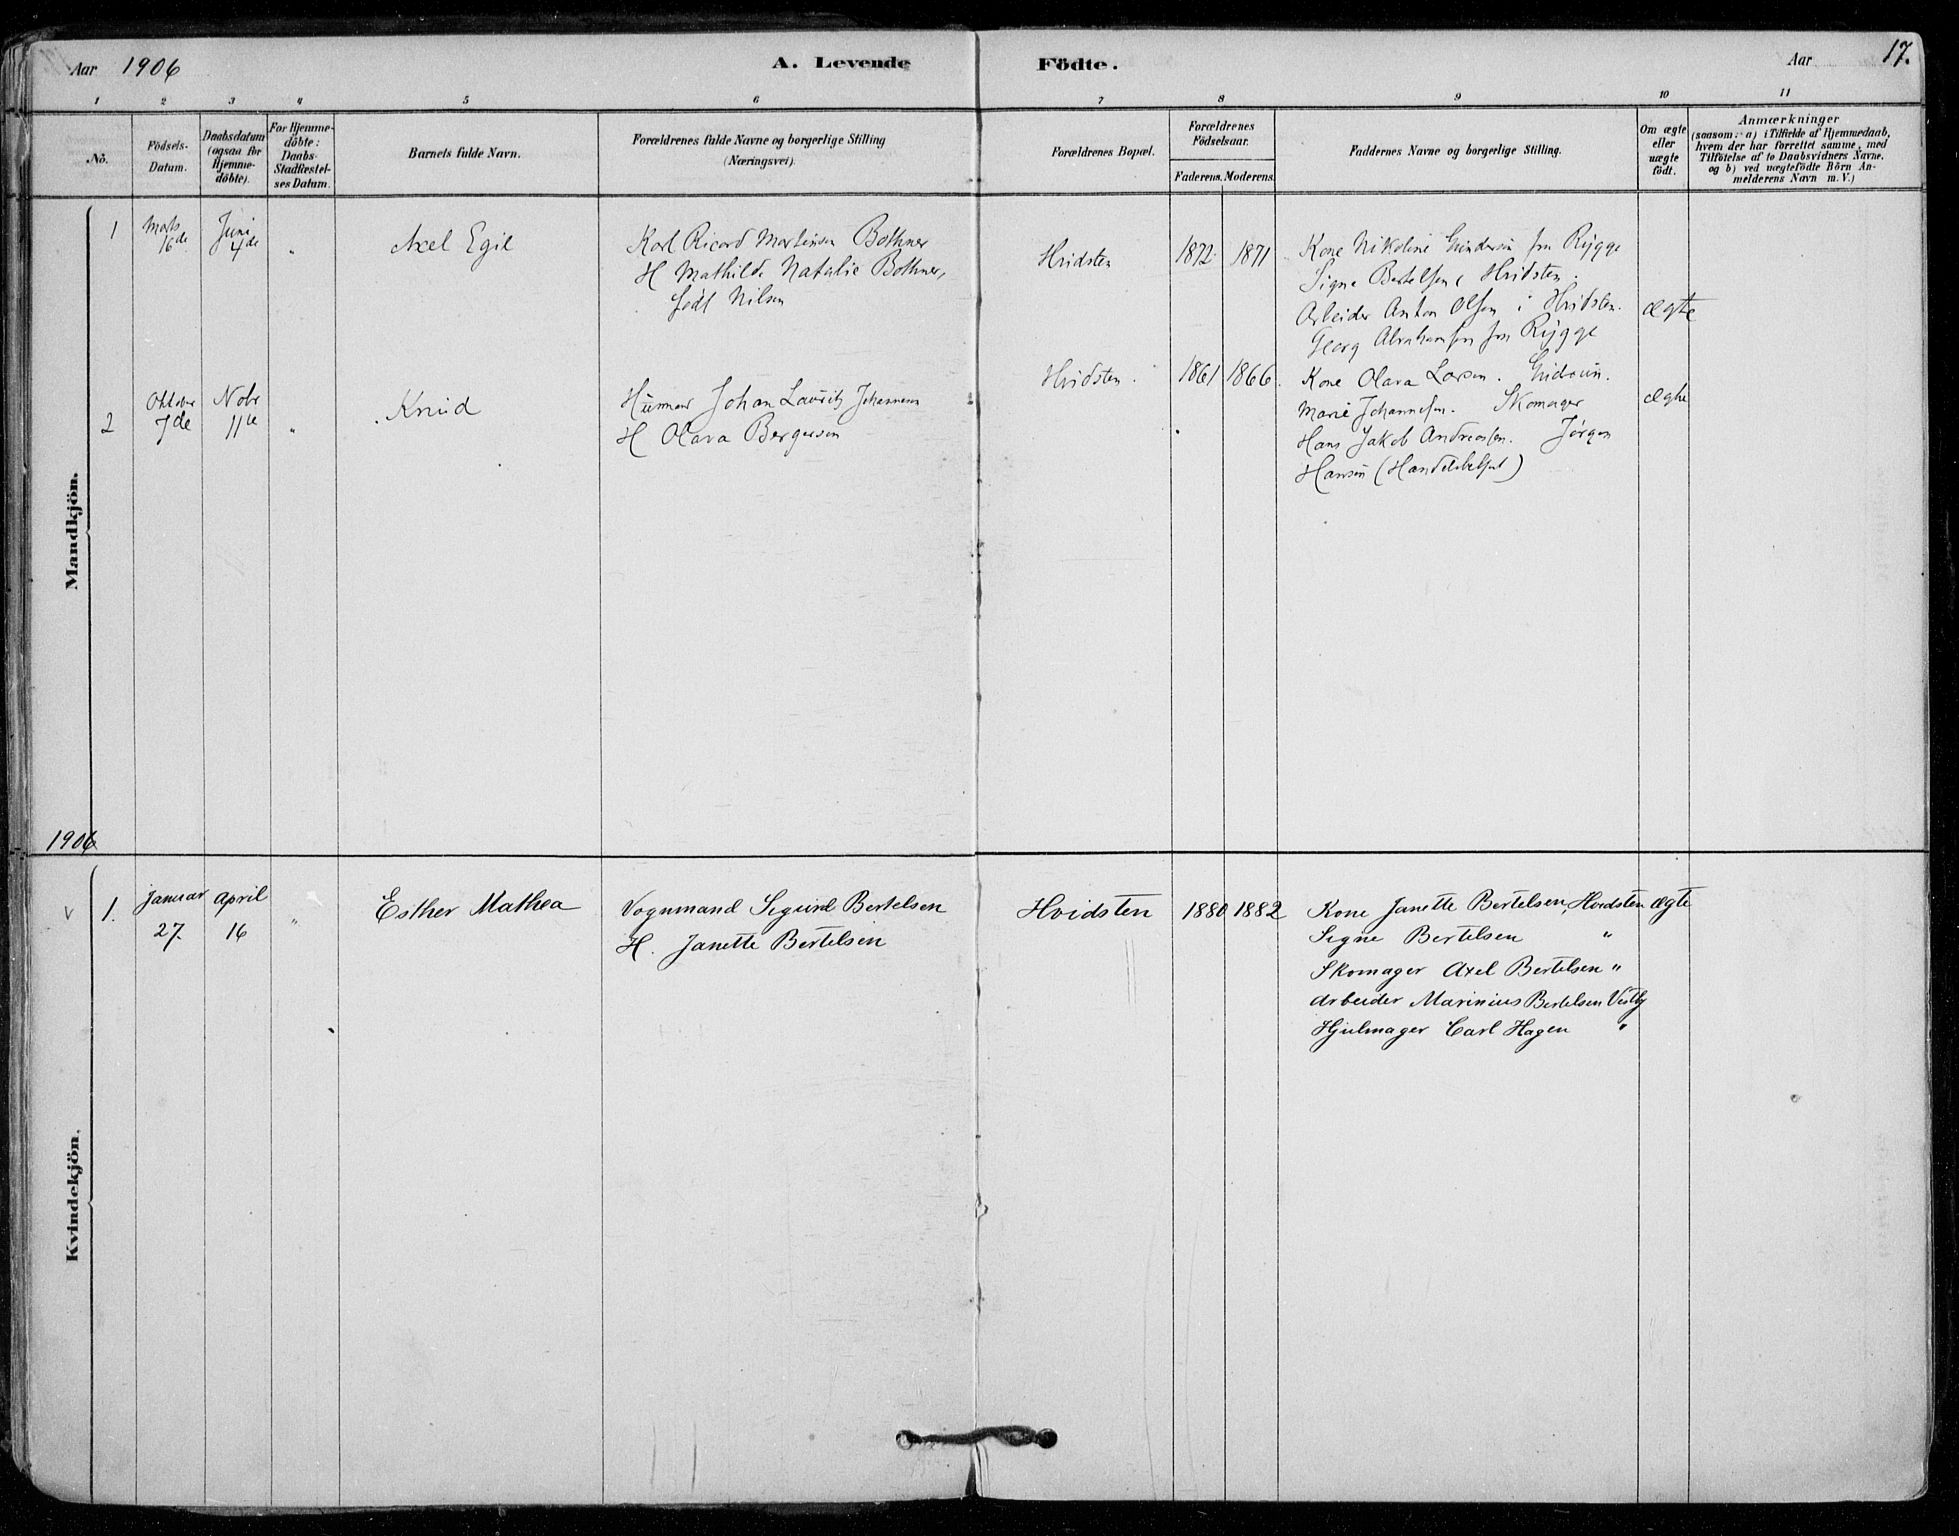 Aar 1906 A. Levende Födte. Aar 17.
1 2 3 4 5 6 7 8 9 10 11
No.
Födsels-
Datum.
Daabsdatum
(ogsaa for
Hjemme-
döbte).
For Hjemme-
döbte:
Daabs-
Stadfæstel-
ses Datum.
Barnets fulde Navn.
Forældrenes fulde Navne og borgerlige Stilling
(Næringsvei).
Forældrenes Bopæl.
Forældrenes
Födselsaar.
Faderens. Moderens.
Faddernes Navne og borgerlige Stilling.
Om ægte
eller
uægte
födt.
Anmærkninger
(saasom: a) i Tilfælde af Hjemmedaab,
hvem der har forrettet samme, med
Tilföielse af to Daabsvidners Navne.
og b) ved uægtefödte Börn An-
melderens Navn m. V.)
Mandkjön.
1
Marts
16de
Juni
4de
"
Axel Egil
Karl Ricard Martinsen Bothner
H Mathilde Natalie Bothner,
født Nilsen
Hvidsten
1872 1871
Kone Nikoline fra Rygge
Signe Bertelsen, Hvidsten.
Arbeider Anton Olsen i Hvidsten.
Georg Abrahamsen fra Rygge
ægte
2
Oktober
7de
Nobr
11te
"
Knud
Husmand Johan Lauritz Johannesen
H Olava Bergersen
Hvidsten.
1861 1866.
Kone Olava Larsen.
Marie Johannesen. Skomager
Hans Jakob Andreassen. Jørgen
Hansen (Handelsbetjent)
ægte
1906
Kvindekjön.
V 1.
Januar
27.
April
16
"
Esther Mathea
Vognmand Sigurd Bertelsen
H. Janette Bertelsen
Hvidsten
1880 1882
Kone Janette Bertelsen, Hvidsten
Signe Bertelsen "
Skomager Axel Bertelsen "
Arbeider Marinius Bertelsen Vestby
Hjulmager Carl Hagen "
ægte